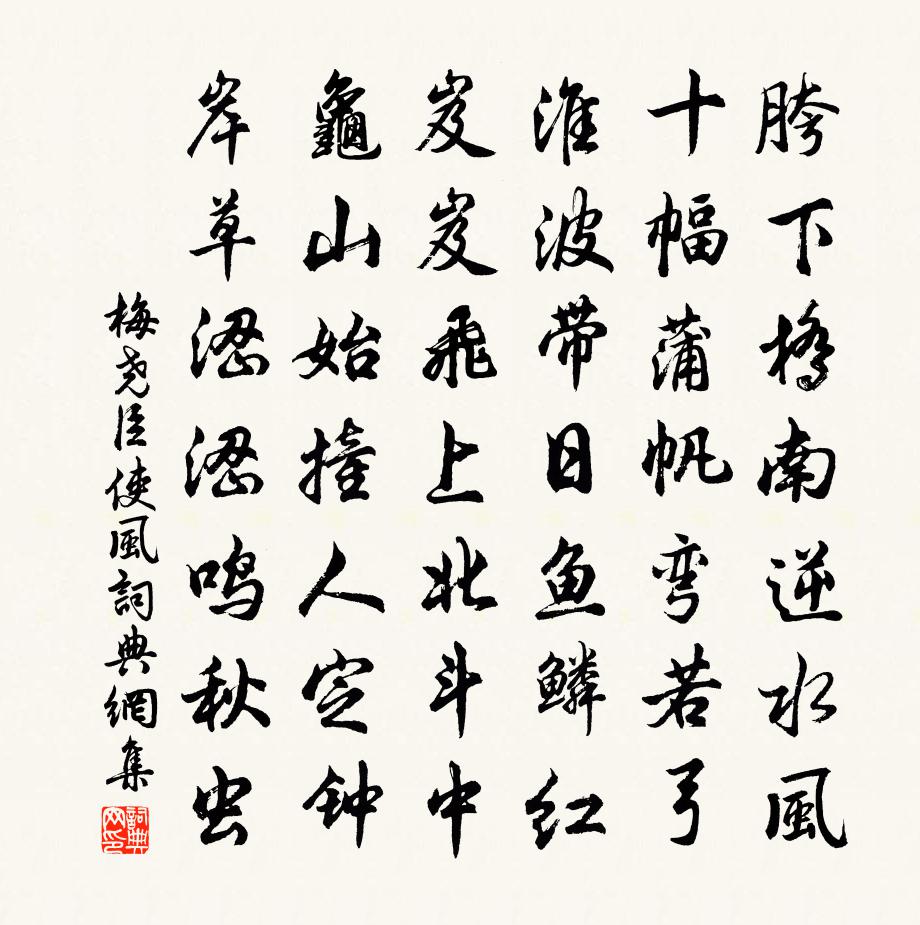 胯下橋南逆水風
十幅蒲帆弯若弓
淮波带日鱼鳞红
岌岌飛上北斗中
龜山始撞人定钟
岸草涩涩鸣秋虫
梅尧臣使風詞典網集
詞典网印